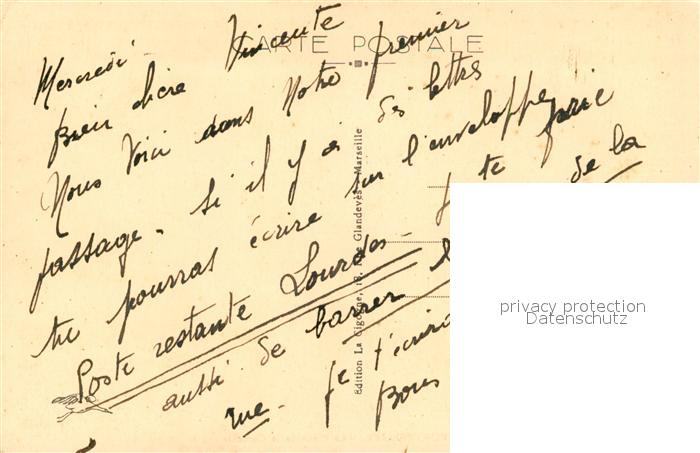 CARTE POSTALE
Mercredi
Bien chère Vincente
Nous voici dans Notre premier
passage. Si il y a des lettres
tu pourras écrire sur l'enveloppe
Poste restante Lourdes - Je te prie
aussi de barrer de la
rue - Je t'écrirai
Bons
Édition La Cigogne, 18, Rue Glandevès - Marseille
privacy protection
Datenschutz